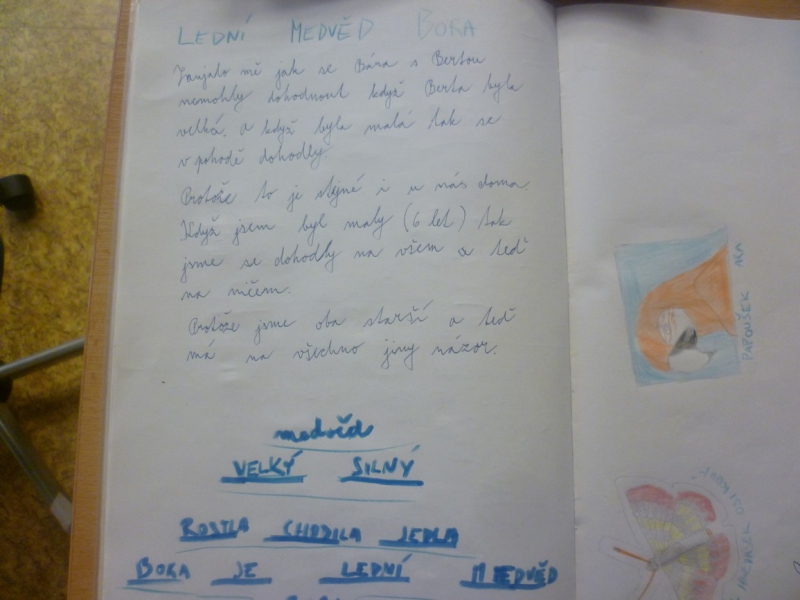 LEDNÍ MEDVĚD BORA
Zaujalo mě jak se Bára s Bertou
nemohly dohodnout když Berta byla
velká. a když byla malá tak se
v pohodě dohodly.
Protože to je stejné i u nás doma.
Když jsem byl maly (6 let) tak
jsme se dohodly na všem a teď
na ničem.
Protože jsme oba starší a teď
má na všechno jiny názor.
medvěd
VELKÝ SILNÝ
ROSTLA CHODILA JEDLA
BORA JE LEDNÍ MEDVĚD
PAPOUŠEK ARA